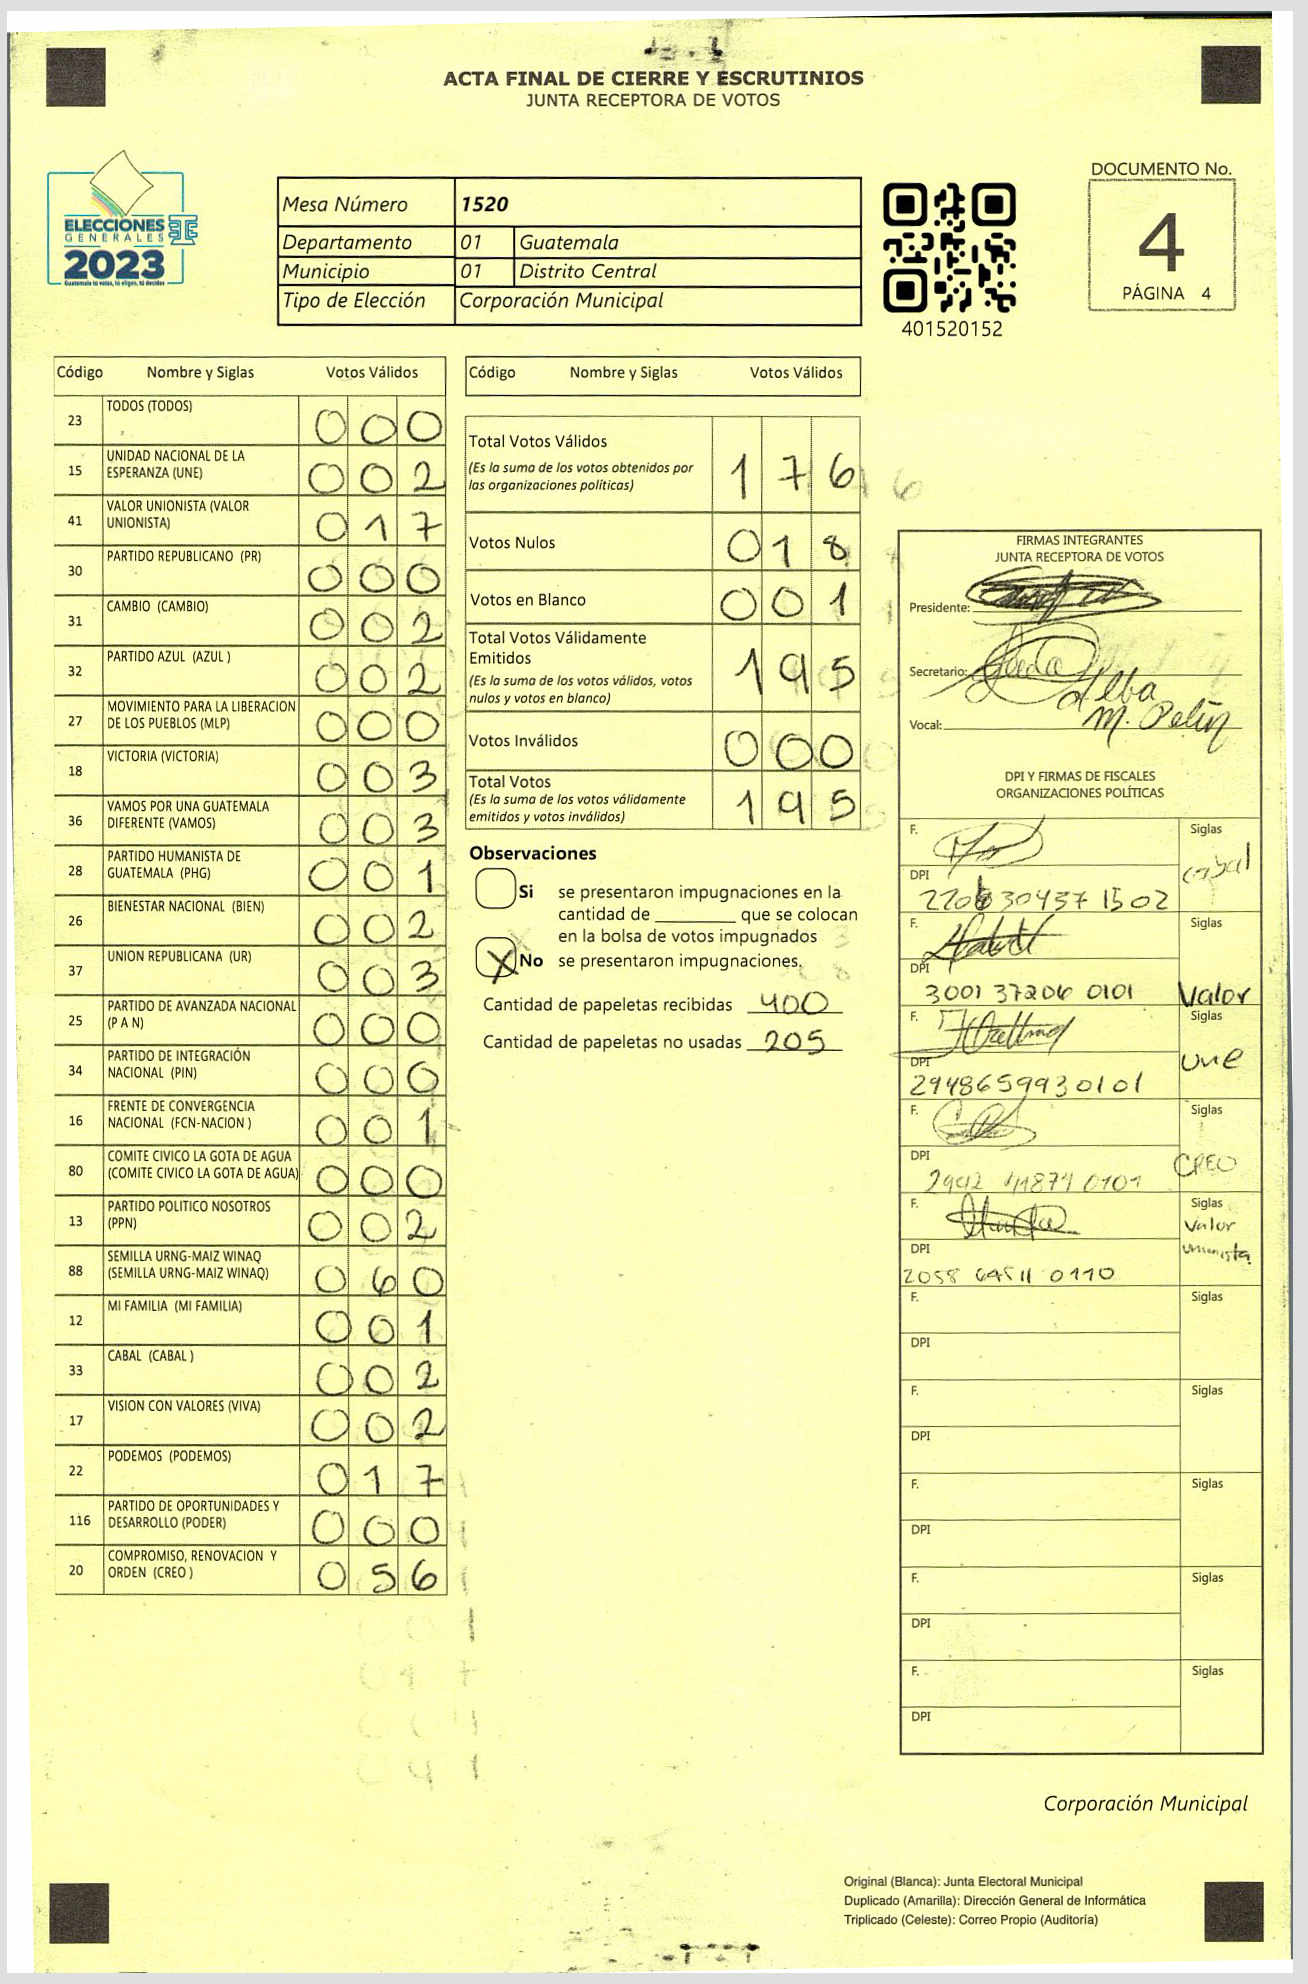 ACTA FINAL DE CIERRE Y ESCRUTINIOS
JUNTA RECEPTORA DE VOTOS
ELECCIONES
GENERALES
2023
Guatemala tú votas, tú eliges, tú decides
Mesa Número 1520
Departamento 01 Guatemala
Municipio 01 Distrito Central
Tipo de Elección Corporación Municipal
401520152
DOCUMENTO No.
4
PÁGINA 4
Código Nombre y Siglas Votos Válidos
23 TODOS (TODOS) 000
15 UNIDAD NACIONAL DE LA
ESPERANZA (UNE) 002
41 VALOR UNIONISTA (VALOR
UNIONISTA) 017
30 PARTIDO REPUBLICANO (PR) 000
31 CAMBIO (CAMBIO) 002
32 PARTIDO AZUL (AZUL ) 002
27 MOVIMIENTO PARA LA LIBERACION
DE LOS PUEBLOS (MLP) 000
18 VICTORIA (VICTORIA) 003
36 VAMOS POR UNA GUATEMALA
DIFERENTE (VAMOS) 003
28 PARTIDO HUMANISTA DE
GUATEMALA (PHG) 001
26 BIENESTAR NACIONAL (BIEN) 002
37 UNION REPUBLICANA (UR) 003
25 PARTIDO DE AVANZADA NACIONAL
(P A N) 000
34 PARTIDO DE INTEGRACIÓN
NACIONAL (PIN) 000
16 FRENTE DE CONVERGENCIA
NACIONAL (FCN-NACION ) 001
80 COMITE CIVICO LA GOTA DE AGUA
(COMITE CIVICO LA GOTA DE AGUA) 000
13 PARTIDO POLITICO NOSOTROS
(PPN) 002
88 SEMILLA URNG-MAIZ WINAQ
(SEMILLA URNG-MAIZ WINAQ) 060
12 MI FAMILIA (MI FAMILIA) 001
33 CABAL (CABAL ) 002
17 VISION CON VALORES (VIVA) 002
22 PODEMOS (PODEMOS) 017
116 PARTIDO DE OPORTUNIDADES Y
DESARROLLO (PODER) 000
20 COMPROMISO, RENOVACION Y
ORDEN (CREO ) 056
Código Nombre y Siglas Votos Válidos
Total Votos Válidos 176
(Es la suma de los votos obtenidos por
las organizaciones políticas)
Votos Nulos 018
Votos en Blanco 001
Total Votos Válidamente
Emitidos 195
(Es la suma de los votos válidos, votos
nulos y votos en blanco)
Votos Inválidos 000
Total Votos 195
(Es la suma de los votos válidamente
emitidos y votos inválidos)
Observaciones
Si se presentaron impugnaciones en la
cantidad de ________ que se colocan
en la bolsa de votos impugnados
X No se presentaron impugnaciones.
Cantidad de papeletas recibidas 400
Cantidad de papeletas no usadas 205
FIRMAS INTEGRANTES
JUNTA RECEPTORA DE VOTOS
Presidente:
Secretario:
Alba
Vocal: M.
DPI Y FIRMAS DE FISCALES
ORGANIZACIONES POLÍTICAS
F. Siglas
cabal
DPI
F. Siglas
DPI
3001 37206 0101 Valor
F. Siglas
DPI une
2948659930101
F. Siglas
DPI CREO
F. Siglas
Valor
unionista
DPI
F. Siglas
DPI
F. Siglas
DPI
F. Siglas
DPI
F. Siglas
DPI
F. Siglas
DPI
Corporación Municipal
Original (Blanca): Junta Electoral Municipal
Duplicado (Amarilla): Dirección General de Informática
Triplicado (Celeste): Correo Propio (Auditoría)